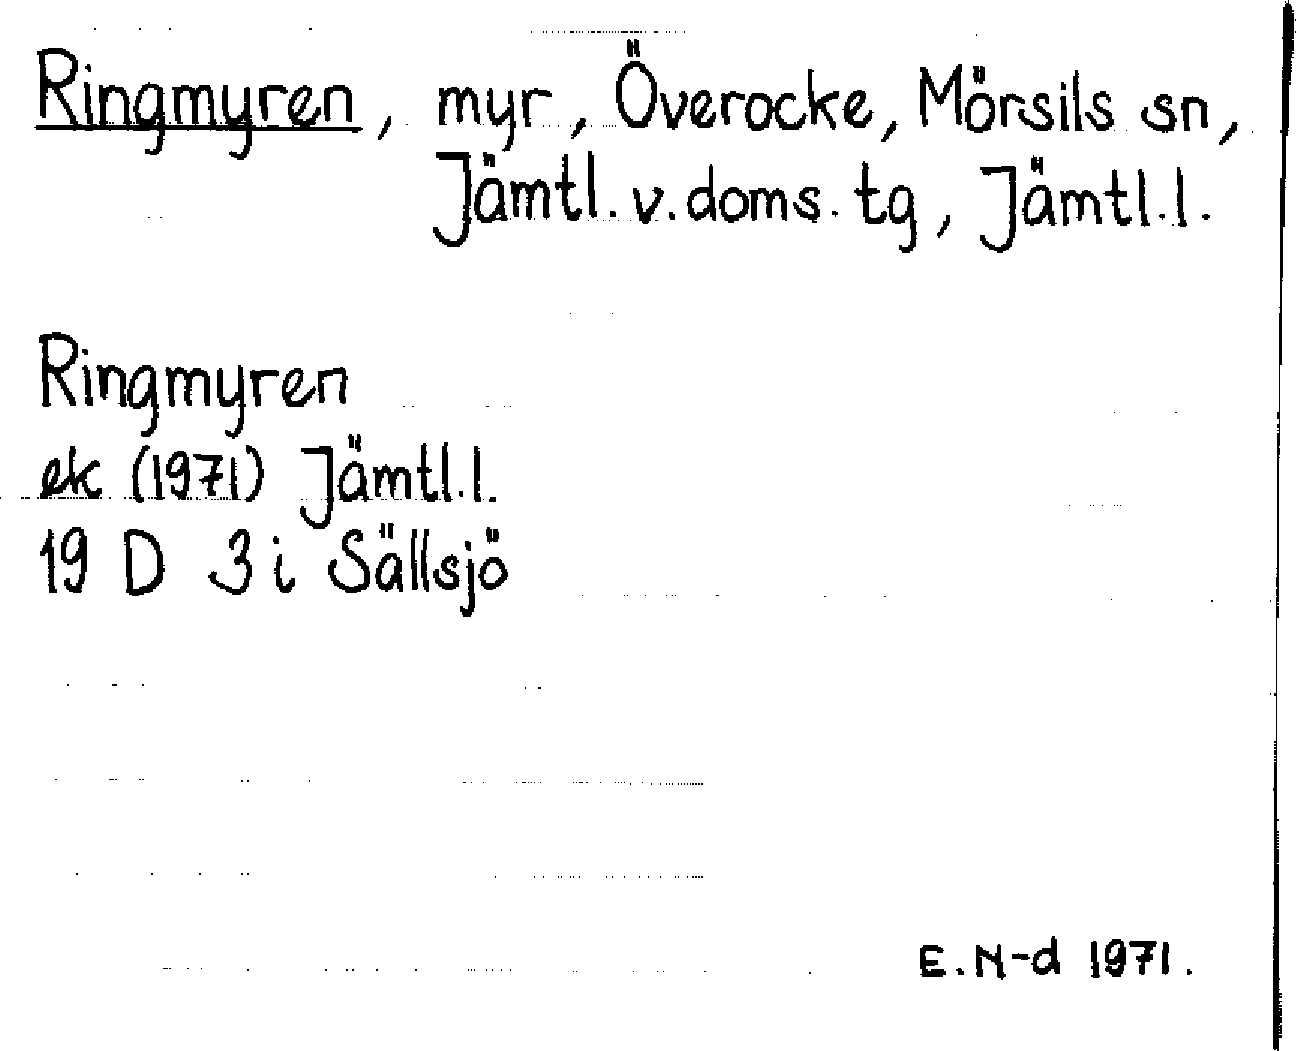 Ringmyren, myr, Överocke, Mörsils sn,
Jämtl. v. doms. tg, Jämtl. l.
Ringmyren
ek (1971) Jämtl. l.
19 D 3 i Sällsjö
E. N-d 1971.